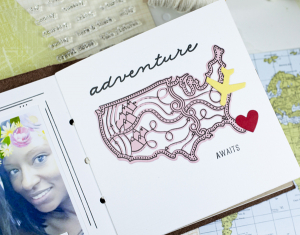 adventure
AWAITS